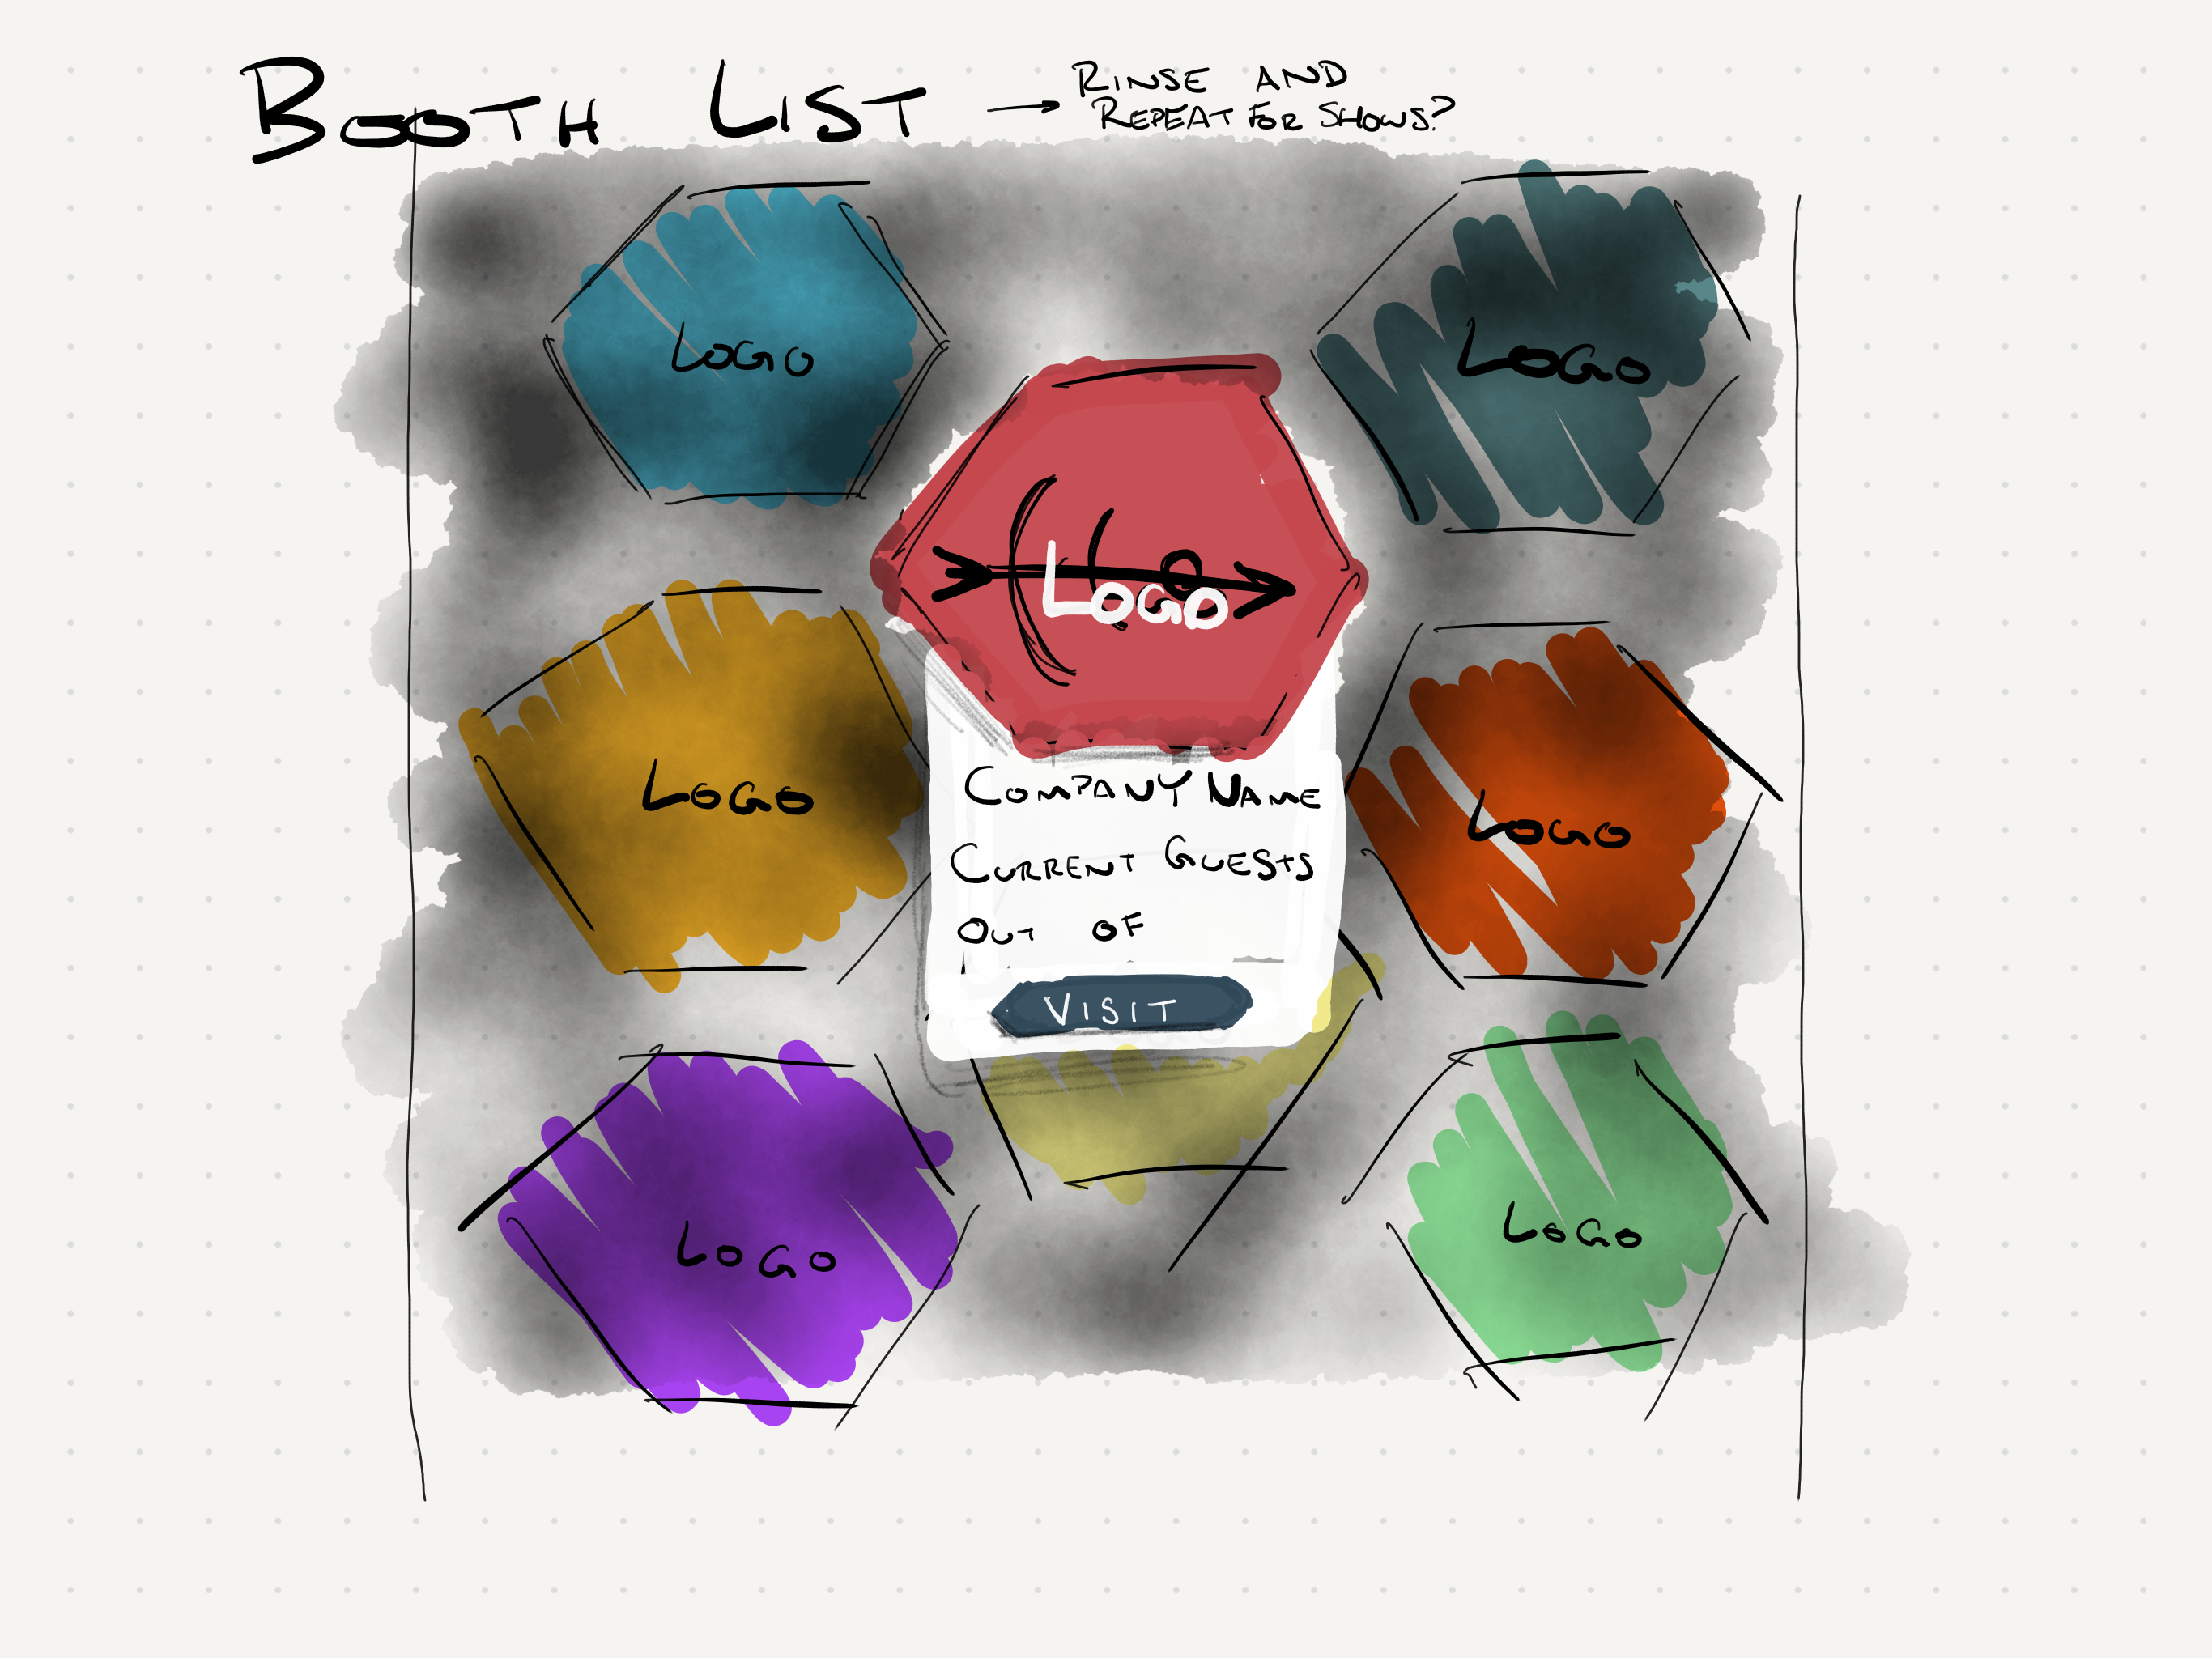 BOOTH LIST → RINSE AND
REPEAT FOR SHOWS?
LOGO
LOGO
LOGO
LOGO
LOGO
COMPANY NAME
CURRENT GUESTS
OUT OF
VISIT
LOGO
LOGO